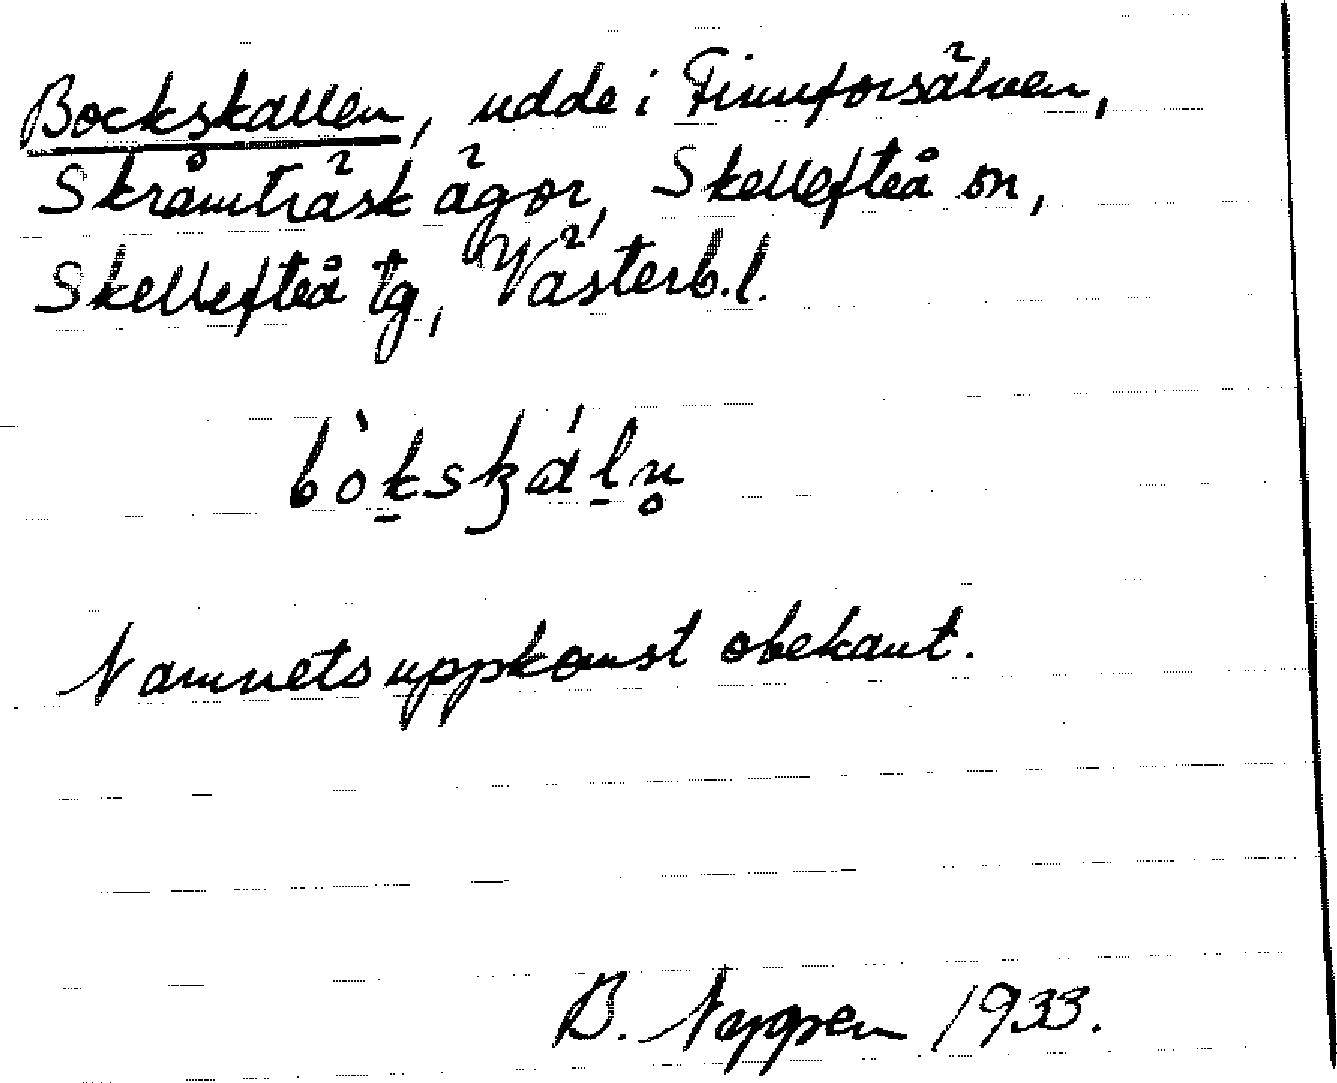 Bockskallen, udde i Finnforsälven,
Skråmträsk ägor, Skellefteå sn,
Skellefteå tg, Västerb.l.
Namnets uppkomst obekant.
B. Nygren 1933.